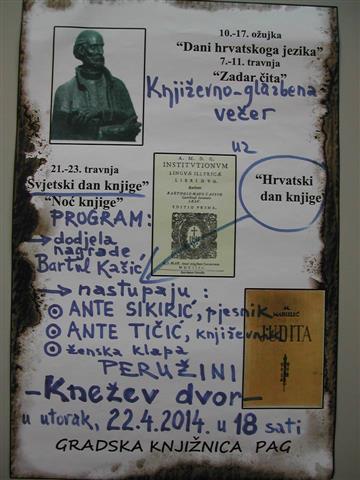 10.-17. ožujka
“Dani hrvatskoga jezika”
7.-11. travnja
“Zadar čita”
Književno-glazbena
večer
uz
21.-23. travnja
Svjetski dan knjige”
“Noć knjige”
“Hrvatski
dan knjige”
A. M. D. G.
INSTITUTIONUM
LINGUÆ ILLYRICÆ
LIBRI DUO.
EDITIO PRIMA.
PROGRAM:
→ dodjela
nagrade
Bartul Kašić
→ nastupaju:
ANTE SIKIRIĆ, pjesnik
ANTE TIČIĆ, književnik
ženska klapa
PERUŽINI
M. MARULIĆ
JUDITA
-Knežev dvor-
u utorak, 22.4.2014. u 18 sati
GRADSKA KNJIŽNICA PAG